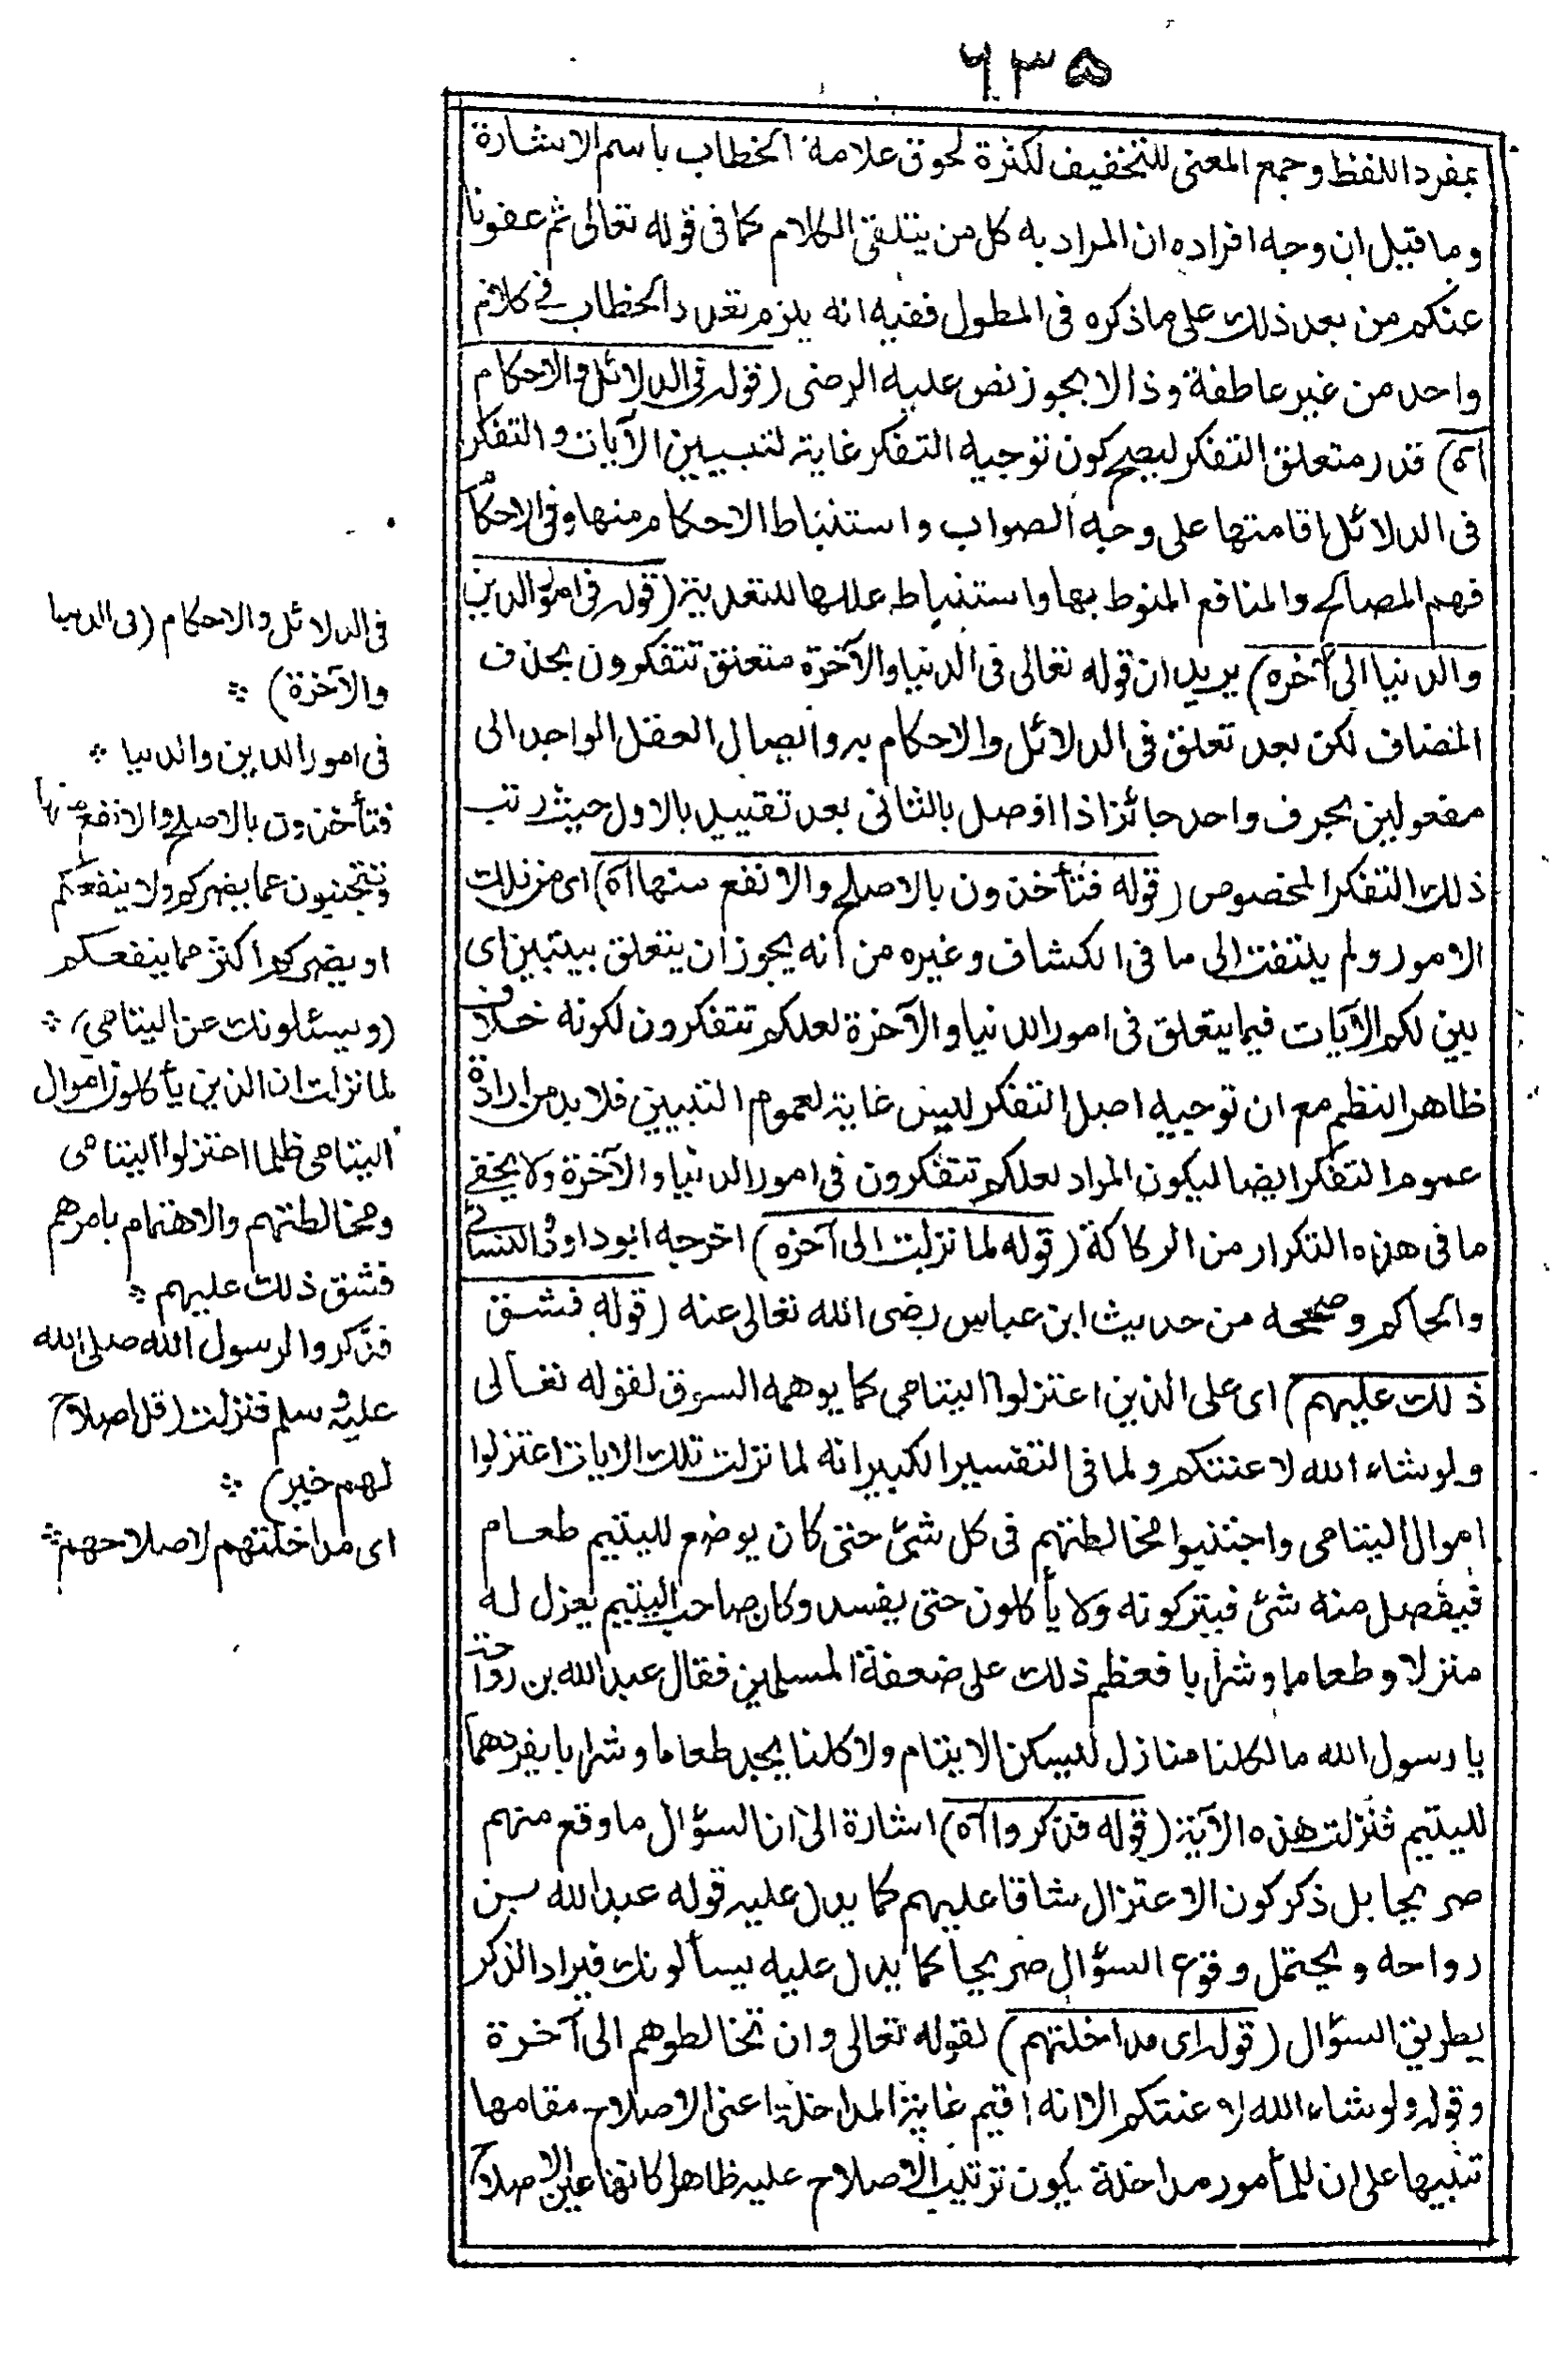 ٦٣٥
بمفرد اللفظ وجمع المعنى للتخفيف لكثرة لحوق علامة الخطاب باسم الاشارة
وما قيل ان وجه افراده ان المراد به كل من يتلقى الكلام كما فى قوله تعالى ثم عفونا
عنكم من بعد ذلك على ما ذكره فى المطول ففيه انه يلزم تعدد الخطاب فى كلام
واحد من غير عاطفة وذا لا يجوز نص عليه الرضى (قوله فى الدلائل والاحكام
آه) قدر متعلق التفكر ليصح كون توجيه التفكر غاية لتبيين الآيات والتفكر
فى الدلائل اقامتها على وجه الصواب واستنباط الاحكام منها وفى الاحكام
فهم المصالح والمنافع المنوط بها واستنباط عللها للتعدية (قوله فى امور الدين
والدنيا الى آخره) يريد ان قوله تعالى فى الدنيا والآخرة متعلق تتفكرون بحذف
المضاف لكن بعد تعلق فى الدلائل والاحكام به وايصال العقل الواحد الى
مفعولين بحرف واحد جائز اذا اوصل بالثانى بعد تقييد بالاول حيث رتب
ذلك التفكر المخصوص (قوله فتأخذون بالاصلح والانفع منها آه) اى من تلك
الامور ولم يلتفت الى ما فى الكشاف وغيره من انه يجوز ان يتعلق بيتبين اى
يبين لكم الآيات فيما يتعلق فى امور الدنيا والآخرة لعلكم تتفكرون لكونه خلاف
ظاهر النظم مع ان توجيه اصل التفكر ليس غاية لعموم التبيين فلا بد من ارادة
عموم التفكر ايضا ليكون المراد لعلكم تتفكرون فى امور الدنيا والآخرة ولا يخفى
ما فى هذه التكرار من الركاكة (قوله لما نزلت الى آخره) اخرجه ابو داود والنسائى
والحاكم وصححه من حديث ابن عباس رضى الله تعالى عنه (قوله فشق
ذلك عليهم) اى على الذين اعتزلوا اليتامى كما يوهمه السوق لقوله تعالى
ولو شاء الله لاعنتكم ولما فى التفسير الكبير انه لما نزلت تلك الايات اعتزلوا
اموال اليتامى واجتنبوا مخالطتهم فى كل شئ حتى كان يوضع لليتيم طعام
فيفضل منه شئ فيتركونه ولا يأكلون حتى يفسد وكان صاحب اليتيم يعزل له
منزلا وطعاما وشرابا فعظم ذلك على ضعفة المسلمين فقال عبد الله بن رواحة
يا رسول الله ما لكلنا منازل ليسكن الايتام ولا كلنا يجد طعاما وشرابا يفردهما
لليتيم فنزلت هذه الآية (قوله فذكروا آه) اشارة الى ان السؤال ما وقع منهم
صريحا بل ذكر كون الاعتزال شاقا عليهم كما يدل عليه قوله عبد الله بن
رواحه ويحتمل وقوع السؤال صريحا كما يدل عليه يسألونك فيراد الذكر
بطريق السؤال (قوله اى مداخلتهم) لقوله تعالى وان تخالطوهم الى آخرة
وقوله ولو شاء الله لاعنتكم الا انه اقيم غاية المداخلة اعنى الاصلاح مقامها
تنبيها على ان للمأمور مداخلة يكون ترتيب الاصلاح عليه ظاهرا كانها عين الاصلاح
فى الدلائل والاحكام (فى الدنيا
والآخرة) ؞
فى امور الدين والدنيا ؞
فتأخذون بالاصلح والانفع منها
وتتجنبون عما يضركم ولا ينفعكم
او يضركم اكثر مما ينفعكم
(ويسئلونك عن اليتامى) ؞
لما نزلت ان الذين يأكلون اموال
اليتامى ظلما اعتزلوا اليتامى
ومخالطتهم والاهتمام بامرهم
فشق ذلك عليهم ؞
فذكروا لرسول الله صلى الله
عليه وسلم فنزلت (قل اصلاح
لهم خير) ؞
اى مداخلتهم لاصلاحهم ؞